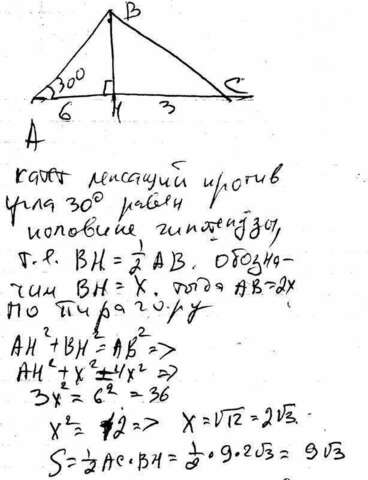 B
30°
6
H
3
C
A
катет лежащий против
угла 30° равен
половине гипотенузы,
т.е. BH = 1/2 AB. обозна-
чим BH = x. тогда AB = 2x
по пифагору
AH² + BH² = AB² =>
AH² + x² = 4x² =>
3x² = 6² = 36
x² = 12 => x = √12 = 2√3.
S = 1/2 AC · BH = 1/2 · 9 · 2√3 = 9√3